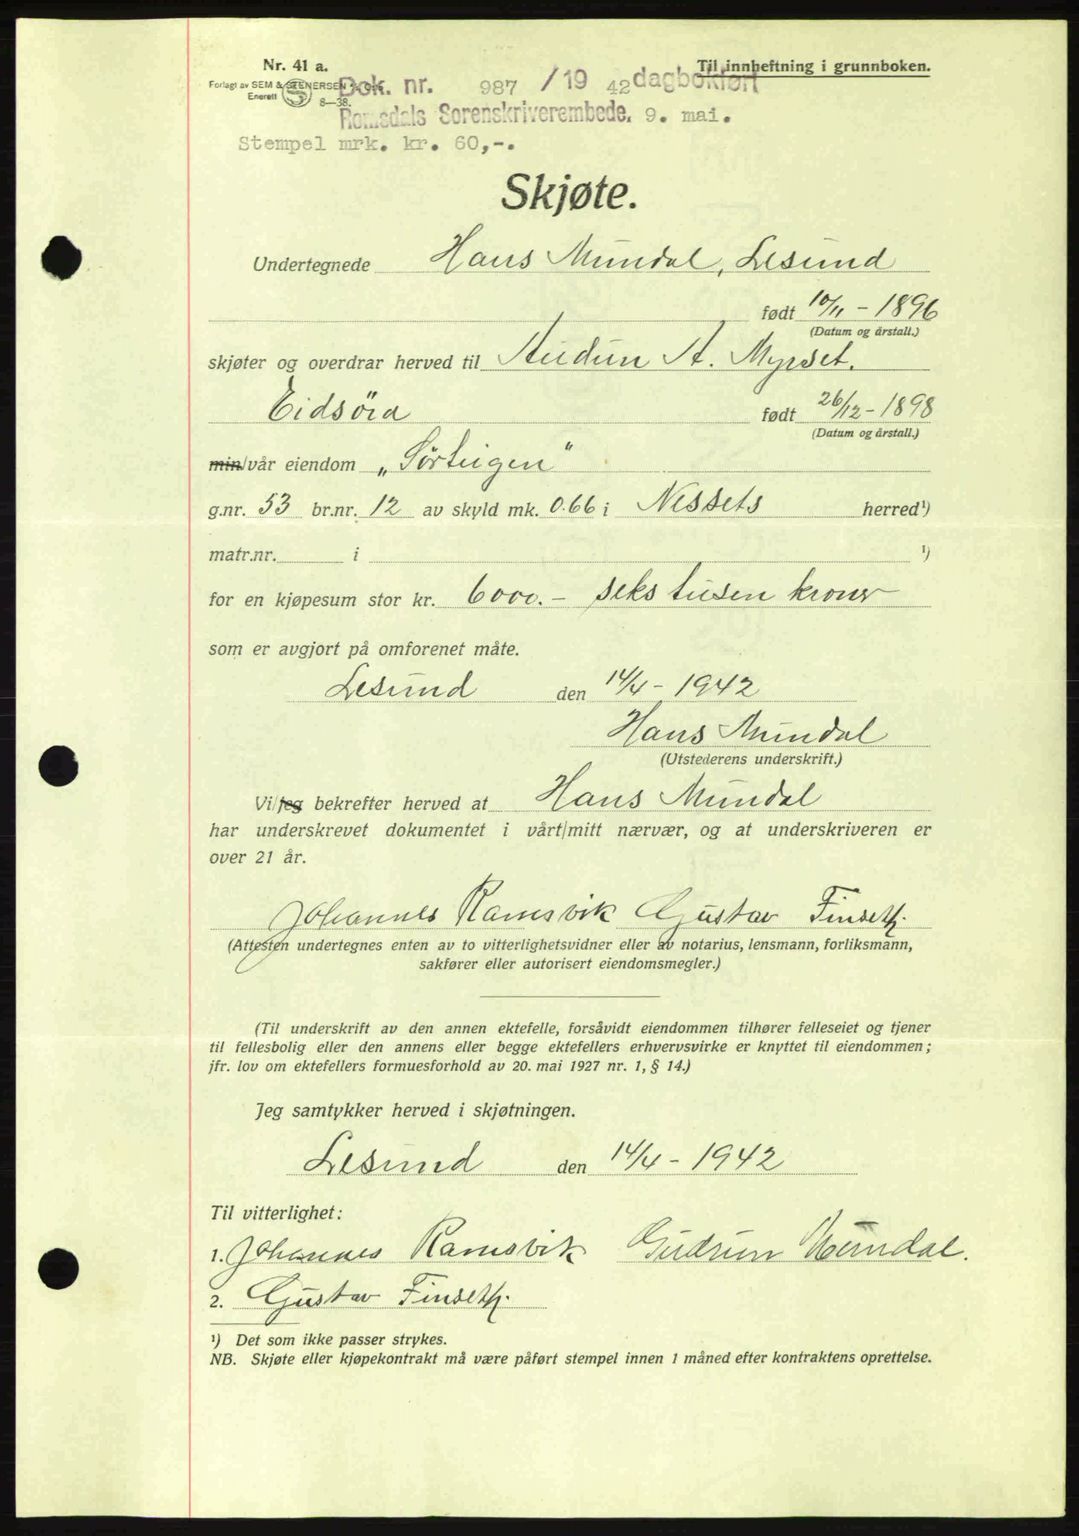 Nr. 41 a.
Til innheftning i grunnboken.
Forlagt av SEM & STENERSEN
Enerett
8—38.
Dok. nr. 987 /19 42 dagbokført
Romsdals Sorenskriverembede, 9. mai.
Stempel mrk. kr. 60,-.
Skjøte.
Undertegnede Hans Mundal, Lesund
født 10/11 - 1896
(Datum og årstall.)
skjøter og overdrar herved til Audun A. Myrset.
Eidsöra født 26/12 - 1898
(Datum og årstall.)
min/vår eiendom „Sörteigen"
g.nr. 53 br.nr. 12 av skyld mk. 0.66 i Nessets herred¹)
matr.nr. i ¹)
for en kjøpesum stor kr. 6000.- seks tusen kroner
som er avgjort på omforenet måte.
Lesund den 14/4 - 1942
Hans Mundal
(Utstederens underskrift.)
Vi/jeg bekrefter herved at Hans Mundal
har underskrevet dokumentet i vårt/mitt nærvær, og at underskriveren er
over 21 år.
Johannes Ramsvik Gustav Finseth.
(Attesten undertegnes enten av to vitterlighetsvidner eller av notarius, lensmann, forliksmann,
sakfører eller autorisert eiendomsmegler.)
(Til underskrift av den annen ektefelle, forsåvidt eiendommen tilhører felleseiet og tjener
til fellesbolig eller den annens eller begge ektefellers erhvervsvirke er knyttet til eiendommen;
jfr. lov om ektefellers formuesforhold av 20. mai 1927 nr. 1, § 14.)
Jeg samtykker herved i skjøtningen.
Lesund den 14/4 - 1942
Til vitterlighet:
1. Johannes Ramsvik Gudrun Mundal.
2. Gustav Finseth.
¹) Det som ikke passer strykes.
NB. Skjøte eller kjøpekontrakt må være påført stempel innen 1 måned efter kontraktens oprettelse.